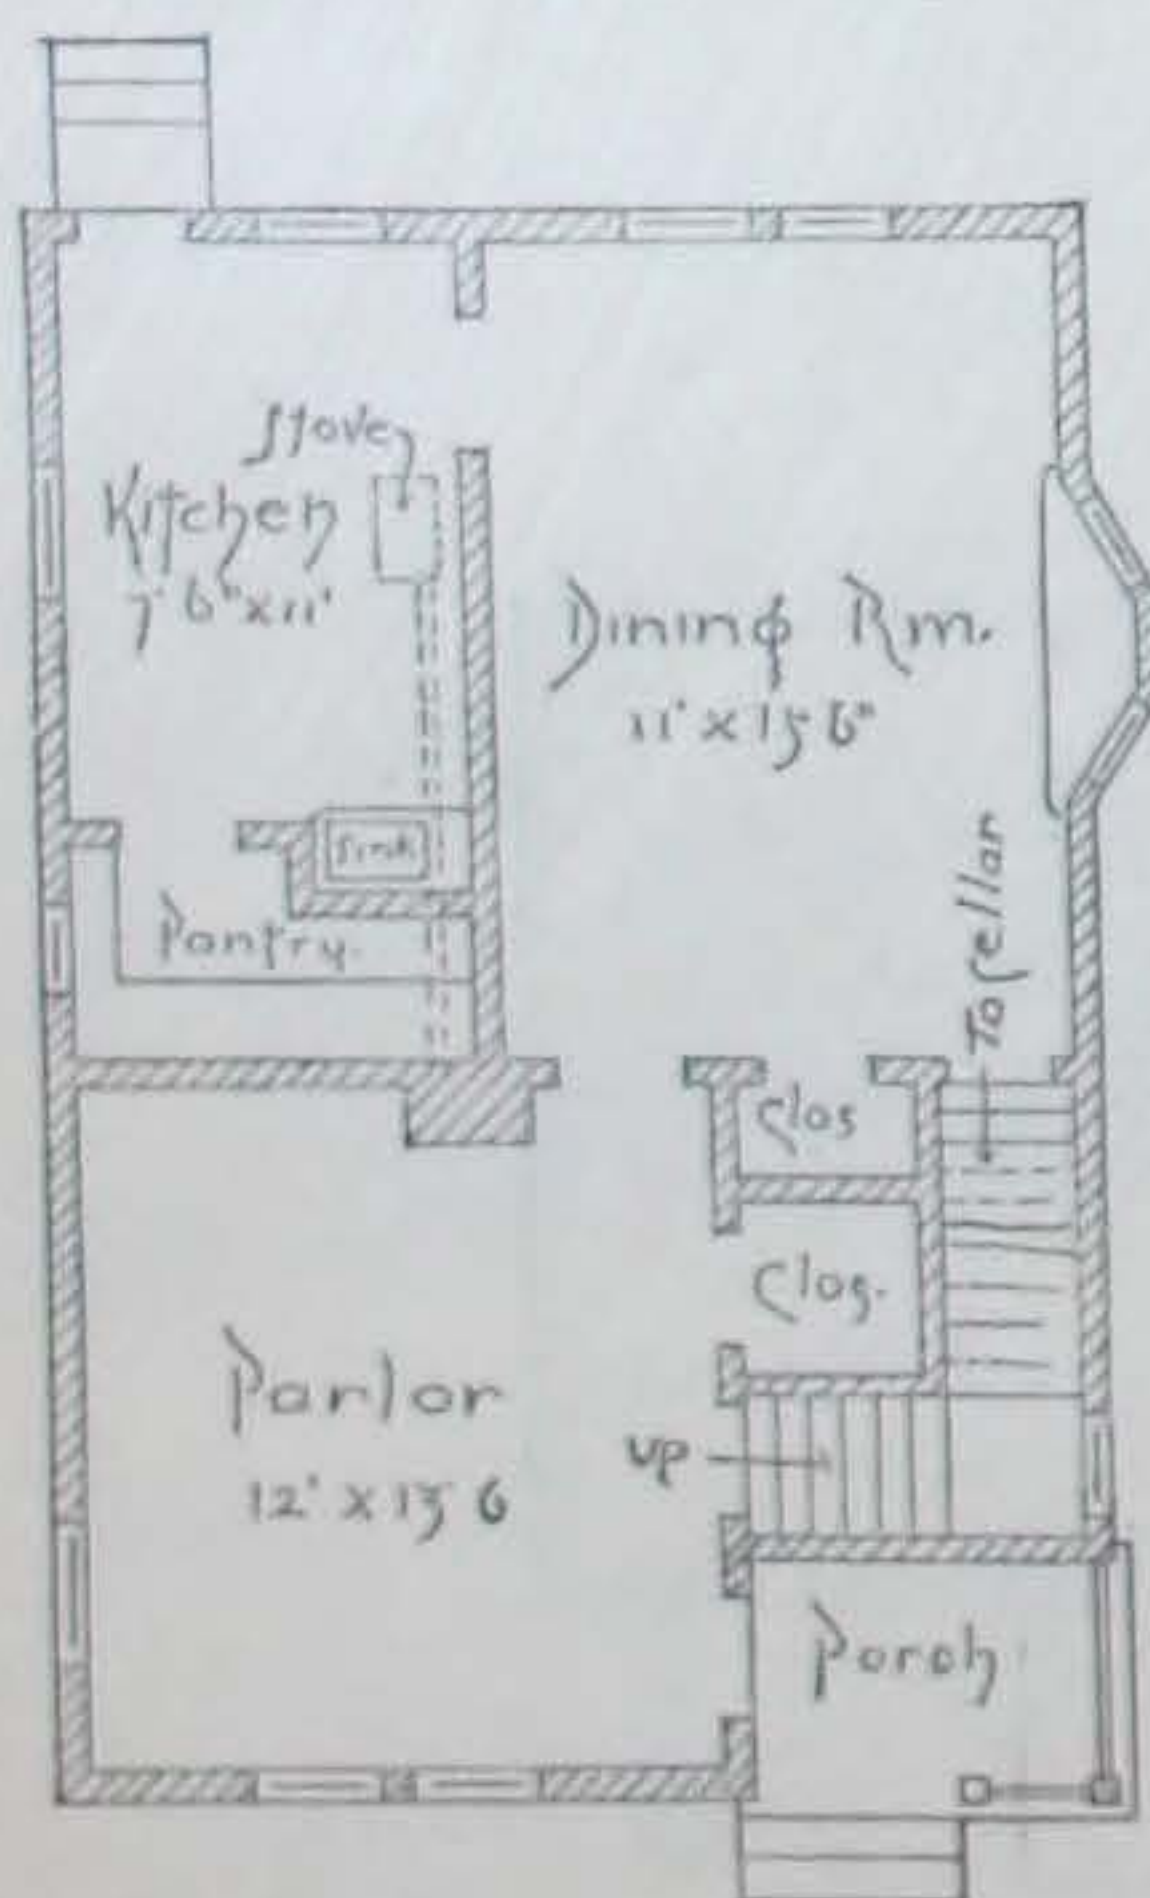 Stove
Kitchen
7' 6" x 11'
Dining Rm.
11' x 15 6"
Sink
Pantry.
To Cellar
Clos
Clos.
Parlor
12' x 15 6
UP
Porch